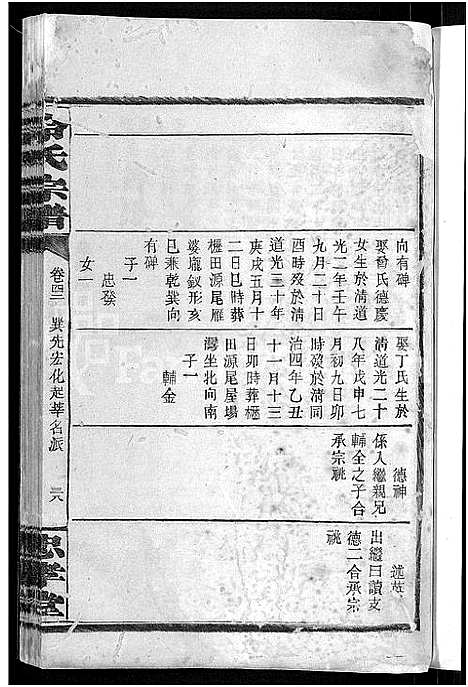 向有碑
娶曾氏德慶
女生於清道
光二年壬午
九月二十日
酉時歿於清
道光三十年
庚戌五月十
二日巳時葬
櫃田源尾雁
婆龐釵形亥
巳兼乾巽向
有碑
子一
忠發
女一
娶丁氏生於
清道光二十
八年戊申七
月初九日卯
時歿於清同
治四年乙丑
十一月十三
日卯時葬櫃
田源尾屋場
灣坐北向南
子一
輔金
德神
係入繼親兄
輔全之子合
承宗祧
述
出繼曰讀支
德二合承宗
祧
氏宗譜
卷四三
巽先宏化起莘名派
三八
忠孝堂